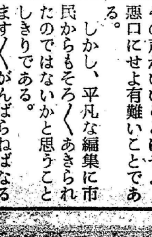 悪口にせよ有難いことであ
る。
しかし、平凡な編集に市
民からもそろ〳〵あきられ
たのではないかと思うこと
しきりである。
ます〳〵がんばらねばなる